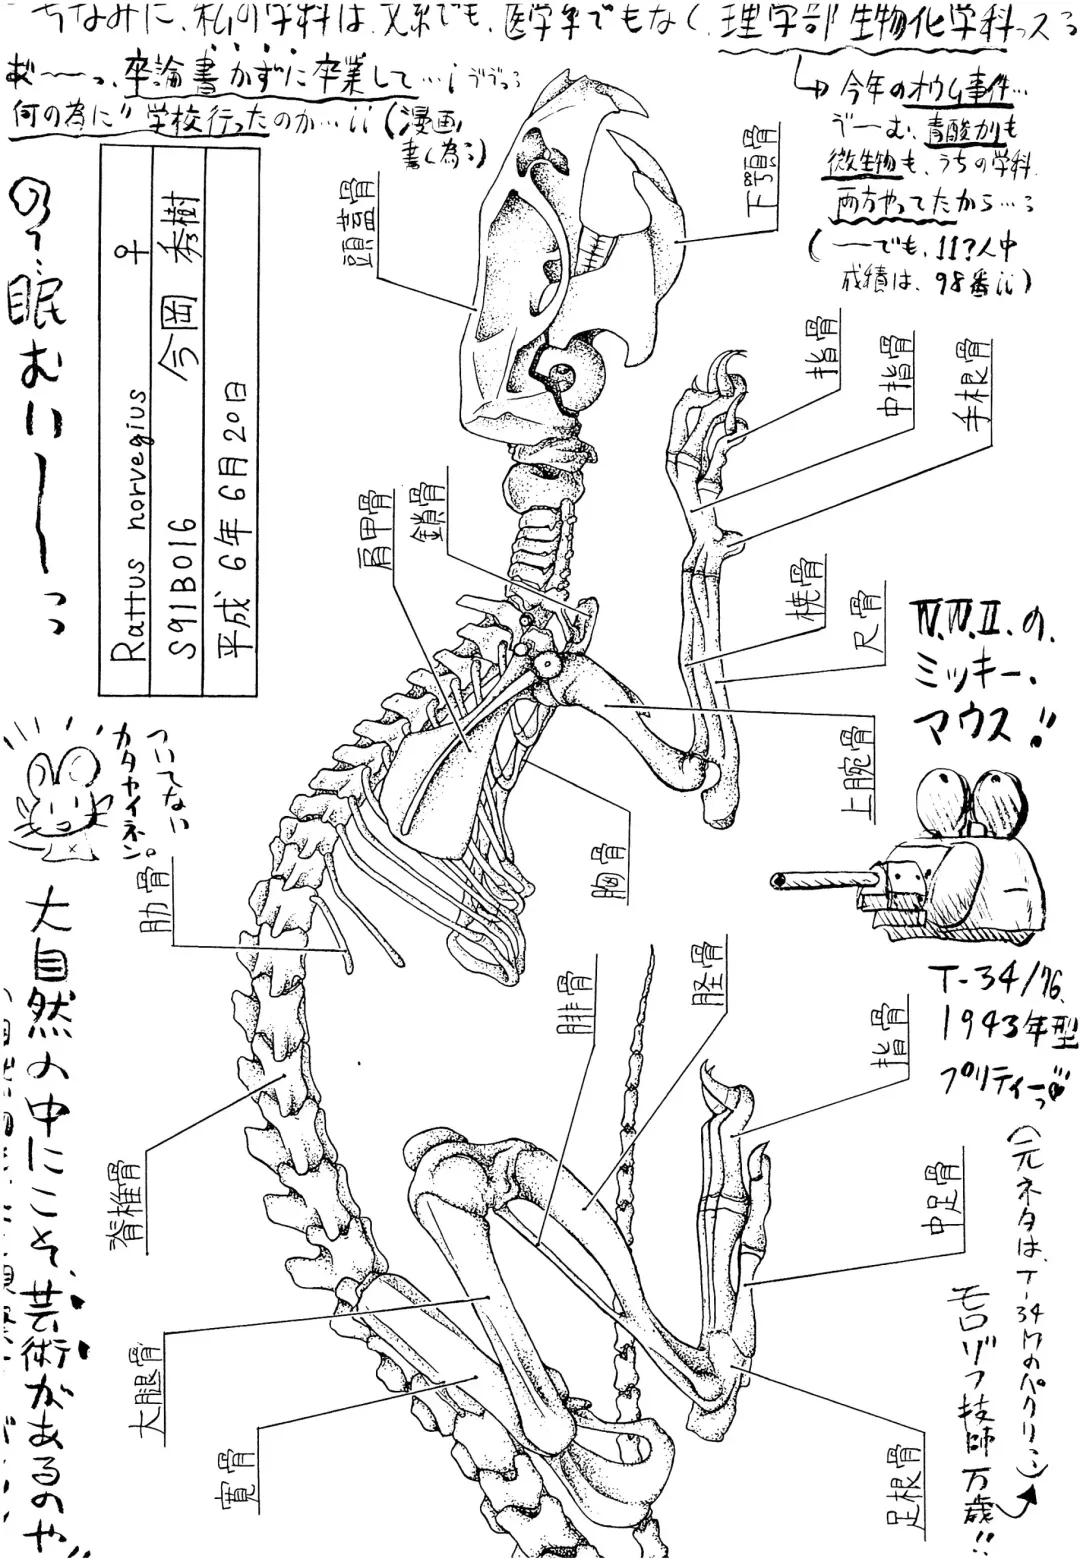 ちなみに、私の学科は、文系でも、医学系でもなく、理学部生物化学科っスろ
卒論書かずに卒業して…
何の為に学校行ったのか…(漫画書く為)
今年のオウム事件…
う゛ーむ、青酸カリも
微生物も、うちの学科
両方やってたから…
(ーーでも、11?人中
成績は、98番)
Rattus norvegius ♀
S91B016 今岡 秀樹
平成6年6月20日
眠むいーーっっ
頭蓋骨
下顎骨
指骨
中指骨
手根骨
肩甲骨
鎖骨
桡骨
尺骨
上腕骨
胸骨
肋骨
ついてない
カタヤイネン。
W.W.Ⅱ.の、
ミッキー、
マウス!!
T-34/76、
1943年型
プリティーっ
(元ネタは、T-34Mのパクリ)
モロゾフ技師万歳!!
腓骨
脛骨
指骨
中足骨
足根骨
脊椎骨
大腿骨
寛骨
大自然の中にこそ、芸術があるのや!!